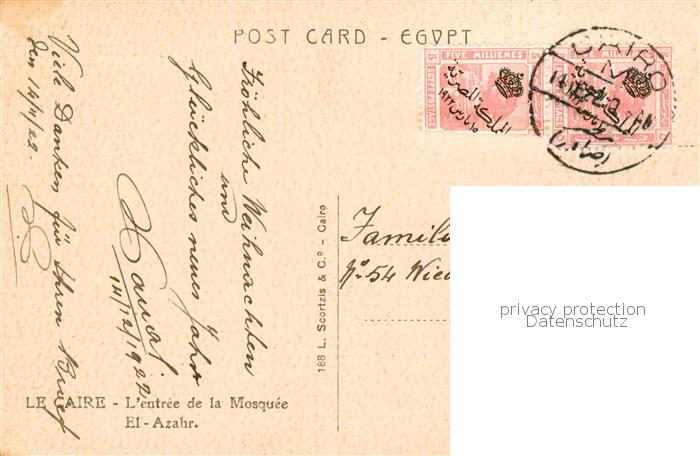 POST CARD - EGYPT
FIVE MILLIEMES
EGYPT POSTAGE
المملكة المصرية
١٥ مارس ١٩٢٢
CAIRO
Fröhliche Weihnachten
und
Glückliches neues Jahr
14/12/1922
Viele Danken für Ihren Brief
den 14/11/22.
Famili
No 54 Wied
188 L. Scortzis & Co. - Cairo
LE CAIRE - L'entrée de la Mosquée
El-Azahr.
privacy protection
Datenschutz